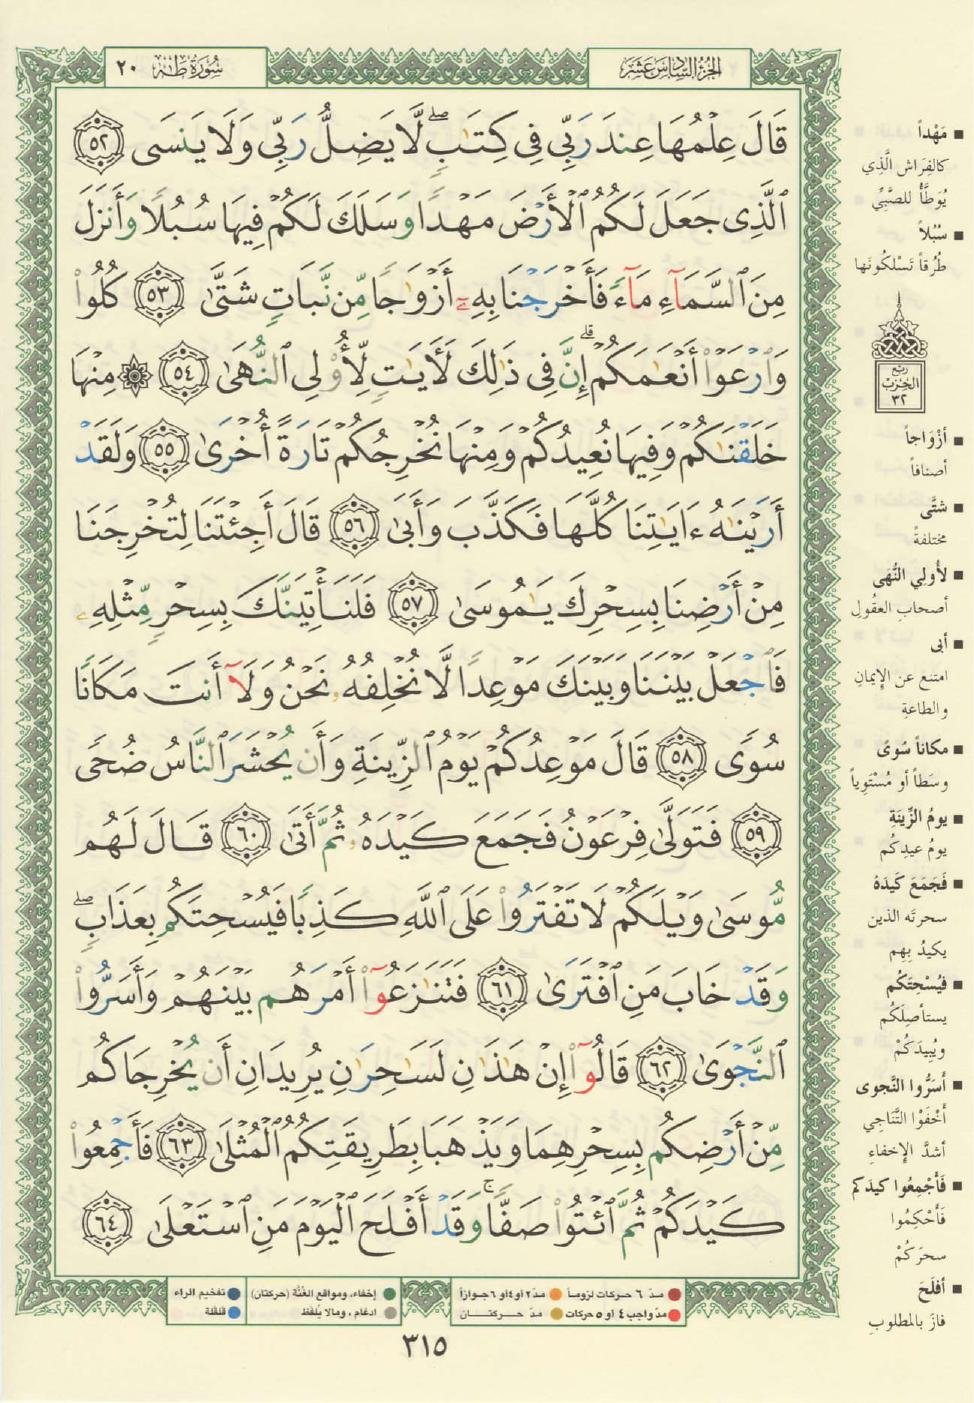 سُورَةُ طه ٢٠
الجُزْءُ السَّادِسَ عَشَرَ
قَالَ عِلْمُهَا عِندَ رَبِّى فِى كِتَٰبٍ ۖ لَّا يَضِلُّ رَبِّى وَلَا يَنسَى ٥٢
ٱلَّذِى جَعَلَ لَكُمُ ٱلْأَرْضَ مَهْدًا وَسَلَكَ لَكُمْ فِيهَا سُبُلًا وَأَنزَلَ
مِنَ ٱلسَّمَآءِ مَآءً فَأَخْرَجْنَا بِهِۦٓ أَزْوَٰجًا مِّن نَّبَاتٍ شَتَّىٰ ٥٣ كُلُوا۟
وَٱرْعَوْا۟ أَنْعَٰمَكُمْ ۗ إِنَّ فِى ذَٰلِكَ لَءَايَٰتٍ لِّأُو۟لِى ٱلنُّهَىٰ ٥٤ ۞ مِنْهَا
خَلَقْنَٰكُمْ وَفِيهَا نُعِيدُكُمْ وَمِنْهَا نُخْرِجُكُمْ تَارَةً أُخْرَىٰ ٥٥ وَلَقَدْ
أَرَيْنَٰهُ ءَايَٰتِنَا كُلَّهَا فَكَذَّبَ وَأَبَىٰ ٥٦ قَالَ أَجِئْتَنَا لِتُخْرِجَنَا
مِنْ أَرْضِنَا بِسِحْرِكَ يَٰمُوسَىٰ ٥٧ فَلَنَأْتِيَنَّكَ بِسِحْرٍ مِّثْلِهِۦ
فَٱجْعَلْ بَيْنَنَا وَبَيْنَكَ مَوْعِدًا لَّا نُخْلِفُهُۥ نَحْنُ وَلَآ أَنتَ مَكَانًا
سُوًى ٥٨ قَالَ مَوْعِدُكُمْ يَوْمُ ٱلزِّينَةِ وَأَن يُحْشَرَ ٱلنَّاسُ ضُحًى
٥٩ فَتَوَلَّىٰ فِرْعَوْنُ فَجَمَعَ كَيْدَهُۥ ثُمَّ أَتَىٰ ٦٠ قَالَ لَهُم
مُّوسَىٰ وَيْلَكُمْ لَا تَفْتَرُوا۟ عَلَى ٱللَّهِ كَذِبًا فَيُسْحِتَكُم بِعَذَابٍ ۖ
وَقَدْ خَابَ مَنِ ٱفْتَرَىٰ ٦١ فَتَنَٰزَعُوٓا۟ أَمْرَهُم بَيْنَهُمْ وَأَسَرُّوا۟
ٱلنَّجْوَىٰ ٦٢ قَالُوٓا۟ إِنْ هَٰذَٰنِ لَسَٰحِرَٰنِ يُرِيدَانِ أَن يُخْرِجَاكُم
مِّنْ أَرْضِكُم بِسِحْرِهِمَا وَيَذْهَبَا بِطَرِيقَتِكُمُ ٱلْمُثْلَىٰ ٦٣ فَأَجْمِعُوا۟
كَيْدَكُمْ ثُمَّ ٱئْتُوا۟ صَفًّا ۚ وَقَدْ أَفْلَحَ ٱلْيَوْمَ مَنِ ٱسْتَعْلَىٰ ٦٤
■ مَهْداً
كالفِرَاش الَّذِي
يُوَطَّأُ للصَّبِيِّ
■ سُبُلاً
طُرُقاً تَسْلكُونَها
ربع
الحزب
٣٢
■ أزْوَاجاً
أصنافاً
■ شتَّى
مختلفةً
■ لأُولِي النُّهَى
أصحاب العقُولِ
■ أبَى
امتنع عن الإيمانِ
والطاعةِ
■ مكاناً سُوىً
وسَطاً أو مُسْتَوِياً
■ يومُ الزِّينَةِ
يومُ عيدِكُم
■ فَجَمَعَ كَيدَهُ
سحرتَه الذين
يكيدُ بِهم
■ فيُسْحِتَكُم
يستأصِلَكُم
ويُبِيدَكُمْ
■ أسَرُّوا النَّجوى
أخْفَوْا التَّنَاجِي
أشدَّ الإخفاءِ
■ فَأَجْمِعُوا كيدَكم
فَأَحْكِمُوا
سحرَكُمْ
■ أفلَحَ
فازَ بالمطلوبِ
مدّ ٦ حركات لزوماً مدّ ٢ أو ٤ أو ٦ جوازاً
مدّ واجب ٤ أو ٥ حركات مدّ حركتان
إخفاء، ومواقع الغُنَّة (حركتان) تفخيم الراء
ادغام، ومالا يُلفَظ قلقلة
٣١٥